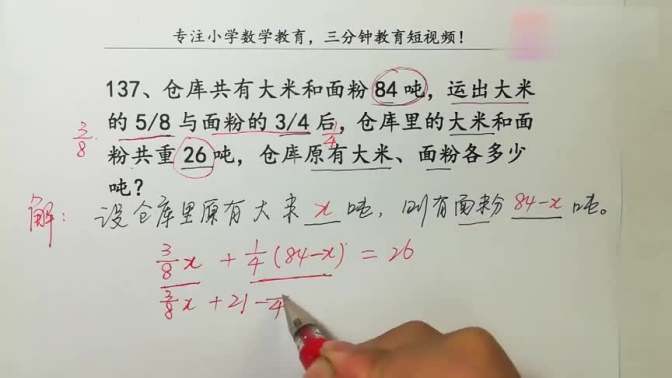 专注小学数学教育，三分钟教育短视频！
137、仓库共有大米和面粉84吨，运出大米
的5/8与面粉的3/4后，仓库里的大米和面
3/8
1/4
粉共重26吨，仓库原有大米、面粉各多少
吨？
解：设仓库里原有大米 x 吨，则有面粉 84-x 吨。
3/8 x + 1/4 (84-x) = 26
3/8 x + 21 - 4